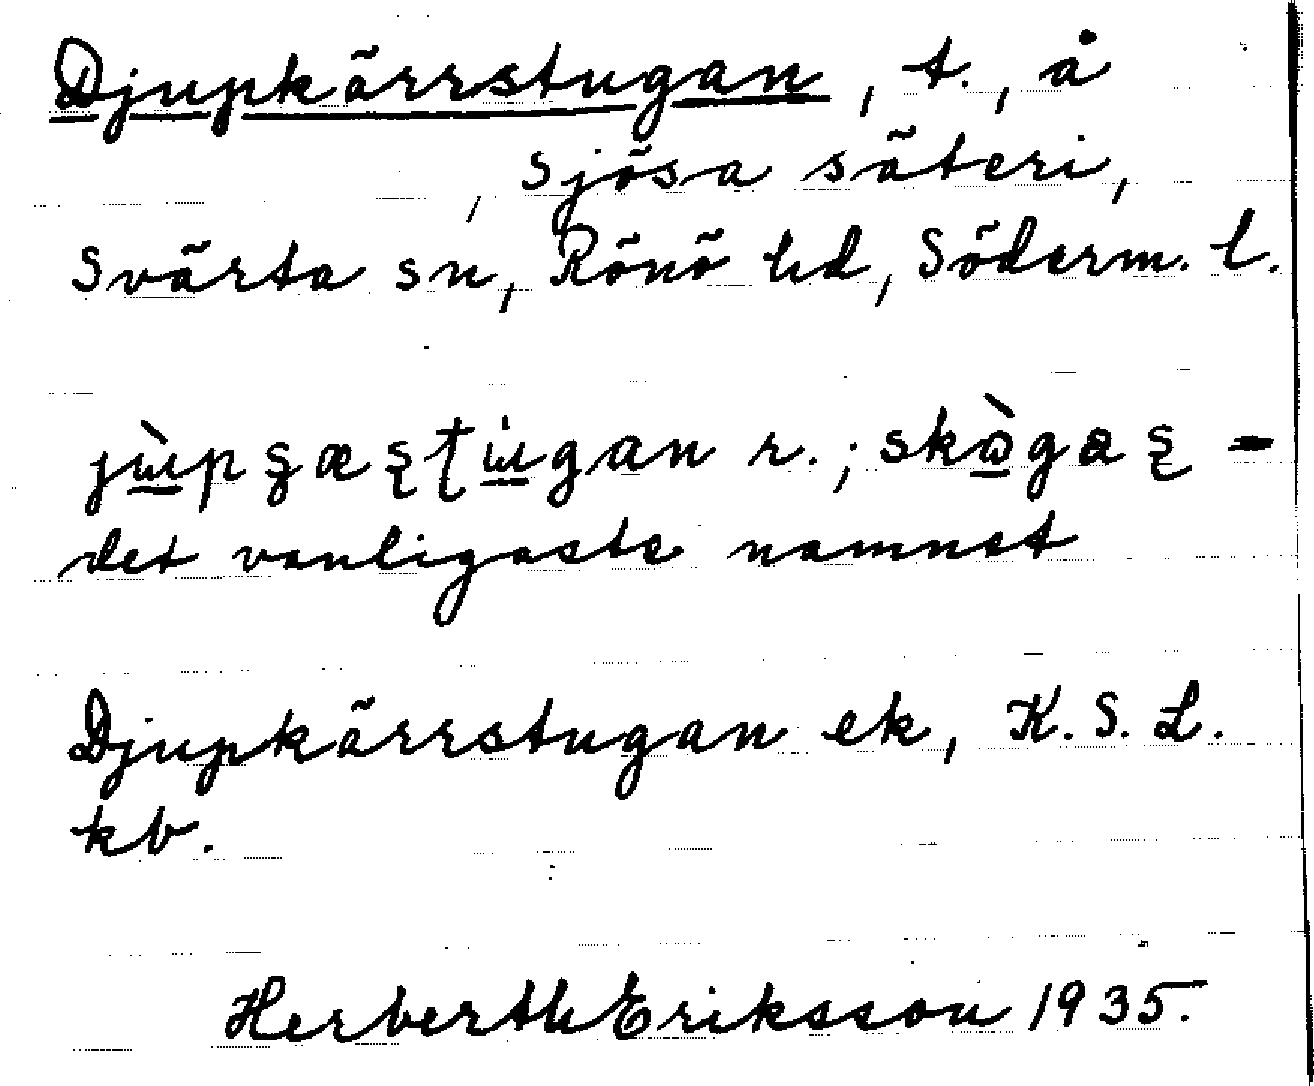 Djupkärrstugan, t., å
, Sjösa säteri,
Svärta sn, Rönö hd, Söderm. l.
r.;
det vanligaste namnet
Djupkärrstugan ek, K. S. L.
kb.
Herberth Eriksson 1935.